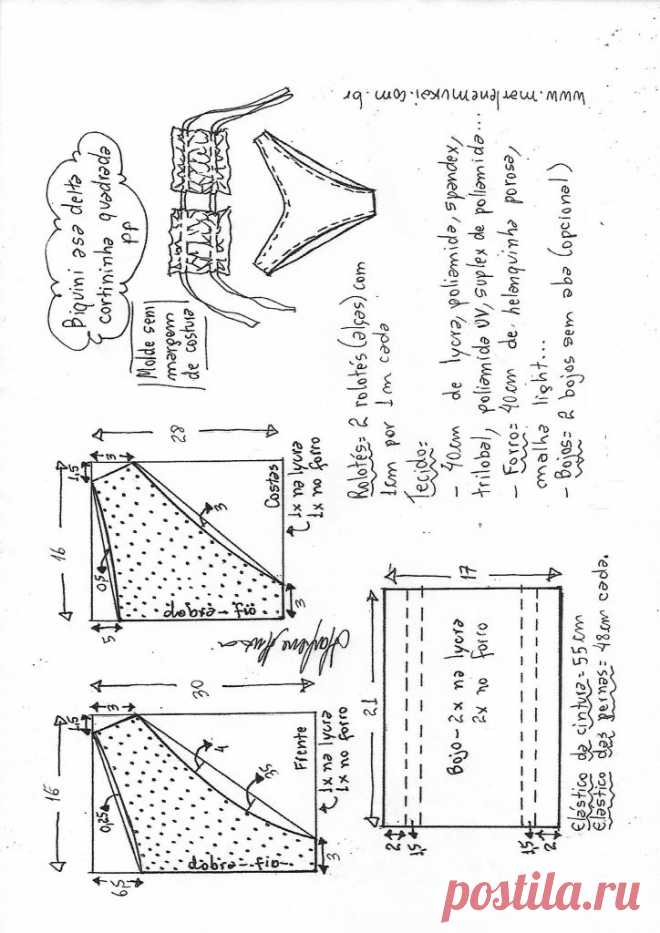 Biquini asa delta
cortininha quadrada
PP
Molde sem
margem
de costura
www.marlenemukai.com.br
16
6,5
0,25
1,5
3
30
4
3,5
Frente
1x na lycra
1x no forro
dobra-fio
3
16
5
0,5
1,5
3
28
3
Costas
1x na lycra
1x no forro
dobra-fio
3
Rolotés= 2 rolotés (alças) com
1cm por 1m cada
Tecido=
- 40cm de lycra, poliamida, spandex,
trilobal, poliamida UV, suplex de poliamida...
- Forro= 40cm de helanquinha porosa,
malha light...
- Bojos= 2 bojos sem aba (opcional)
21
17
Bojo-2x na lycra
2x no forro
2
1,5
1,5
2
Elástico da cintura=55cm
Elástico das pernas=48cm cada.
postila.ru